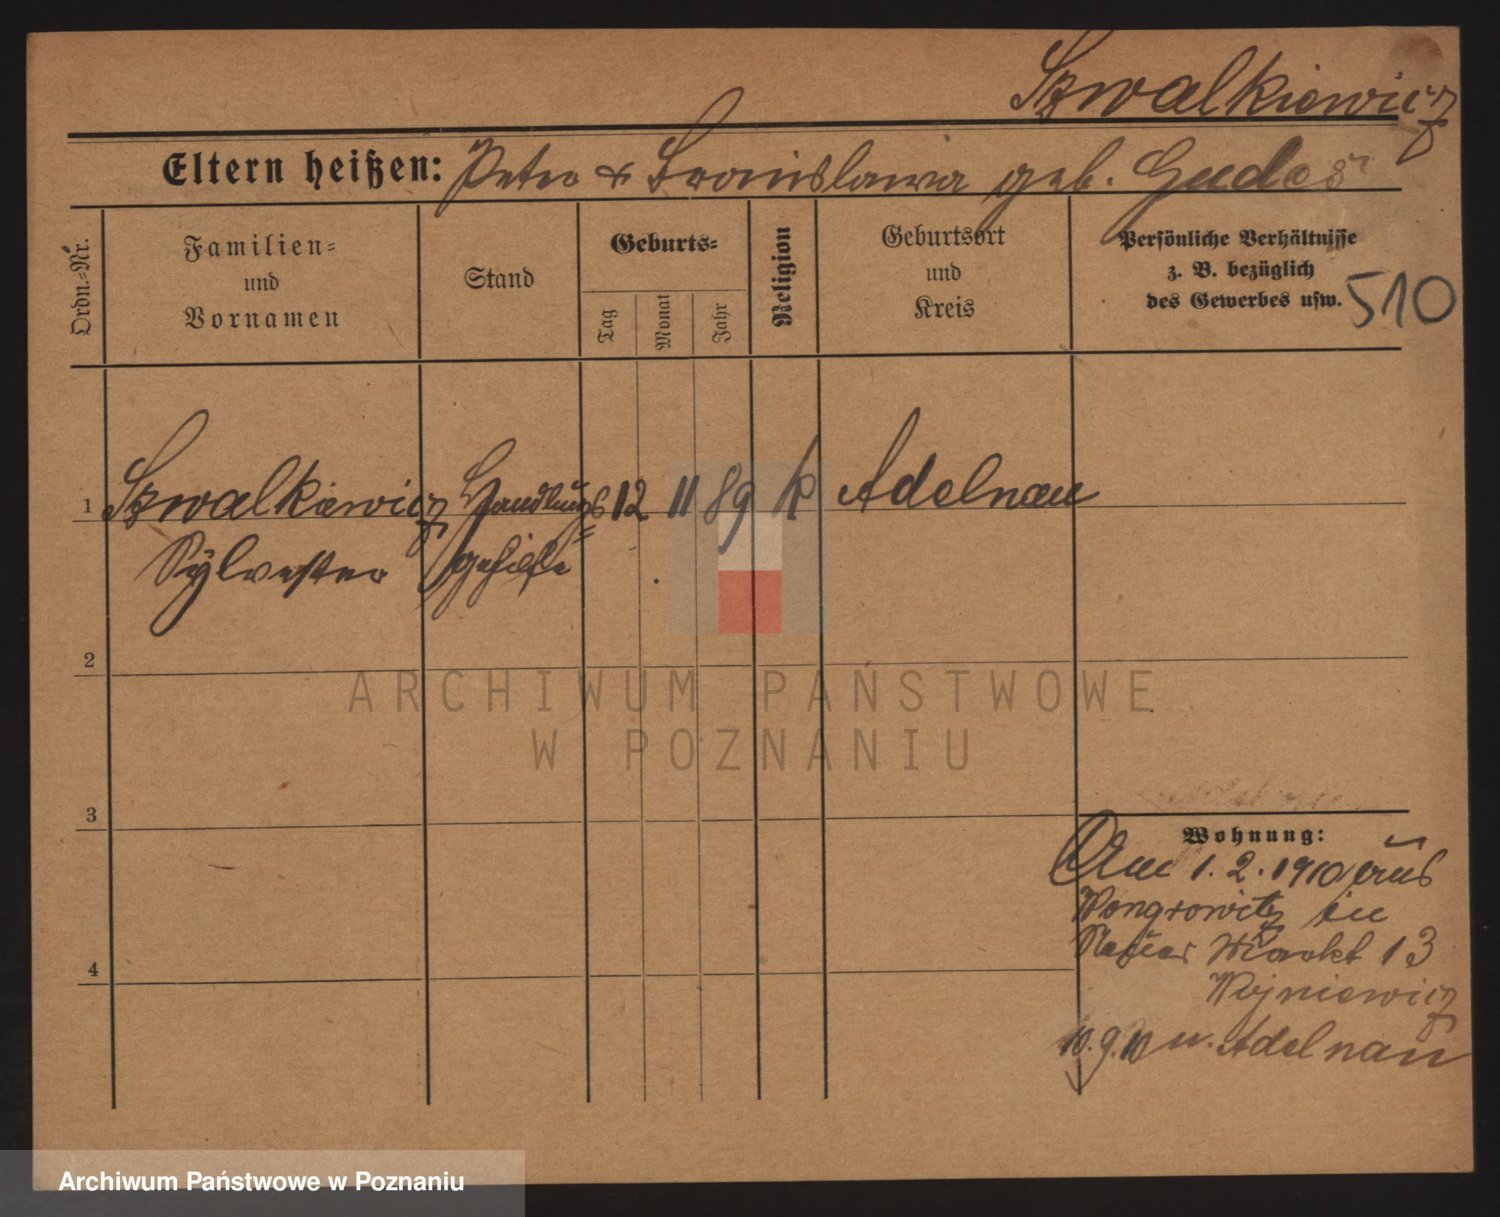 Szwalkiewicz
Eltern heißen: Peter & Bronislawa geb.
Ordn.-Nr.
Familien-
und
Vornamen
Stand
Geburts-
Tag
Monat
Jahr
Religion
Geburtsort
und
Kreis
Persönliche Verhältnisse
z. B. bezüglich
des Gewerbes usw.
510
1 Szwalkiewicz Handlungs 12 11 89 k Adelnau
Sylvester gehilfe
2
ARCHIWUM PAŃSTWOWE
W POZNANIU
3
Wohnung:
Am 1.2.1910 aus
Wongrowitz in
Neuer Markt 13
4
Wojniewicz
10.9.10 n. Adelnau
Archiwum Państwowe w Poznaniu